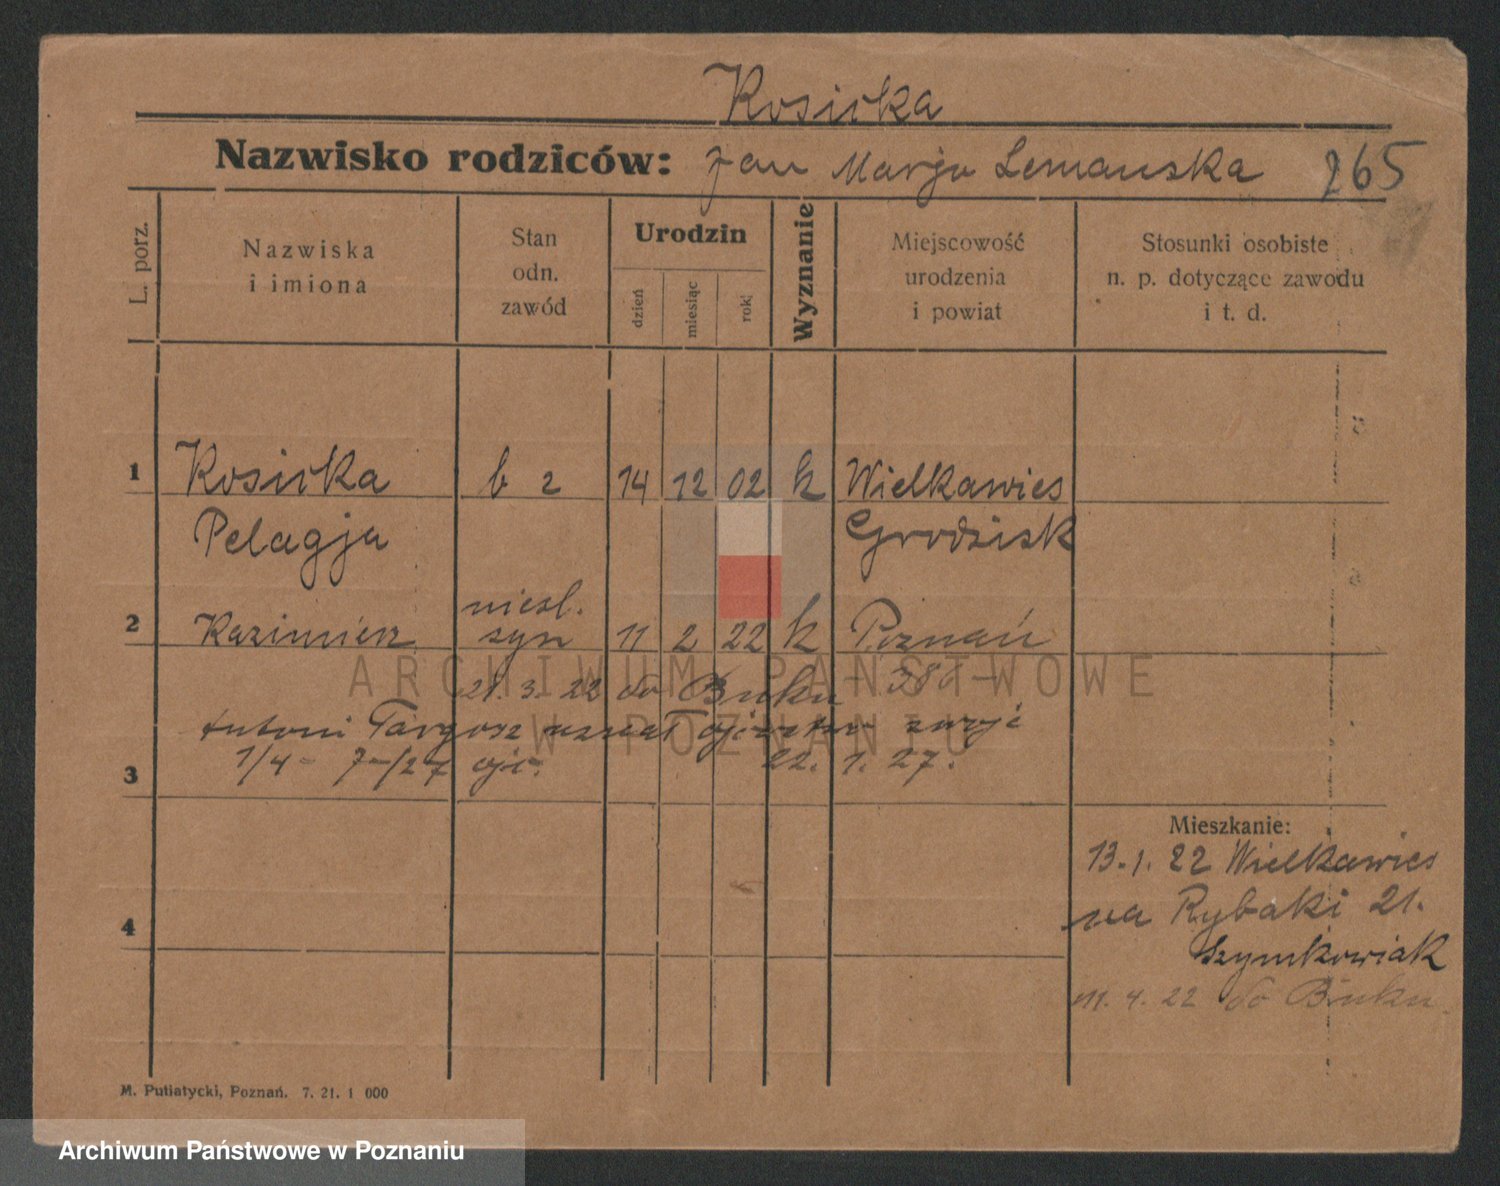 Kosicka
Nazwisko rodziców: Jan Marja Lemanska 265
L. porz.
Nazwiska
i imiona
Stan
odn.
zawód
Urodzin
dzień
miesiąc
rok
Wyznanie
Miejscowość
urodzenia
i powiat
Stosunki osobiste
n. p. dotyczące zawodu
i t. d.
1 Kosicka b z 14 12 02 k Wielkawies
Pelagja Grodzisk
niesl.
2 Kazimierz syn 11 2 22 k Poznań
21. 3. 22 do Buku
Antoni Targosz uznał ojcostwo
3 1/4 - 7-/27 22. 1. 27.
Mieszkanie:
13. 1. 22 Wielkawies
na Rybaki 21.
4
Szymkowiak
11. 4. 22 do Buku
M. Putiatycki, Poznań. 7. 21. 1 000
ARCHIWUM PAŃSTWOWE
W POZNANIU
Archiwum Państwowe w Poznaniu